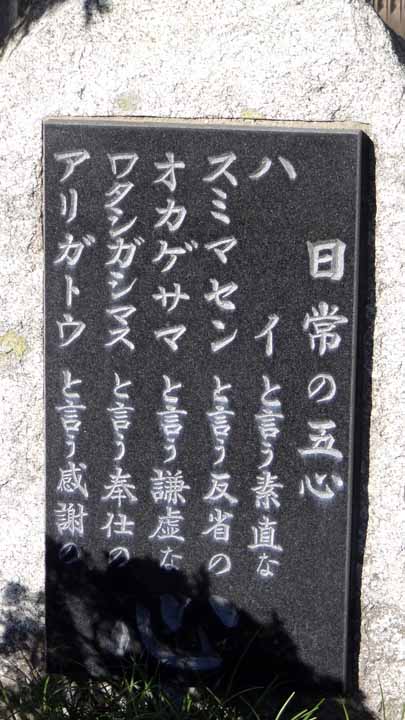 日常の五心
ハイと言う素直な
スミマセンと言う反省の
オカゲサマと言う謙虚な
ワタシガシマスと言う奉仕の
アリガトウと言う感謝の
心